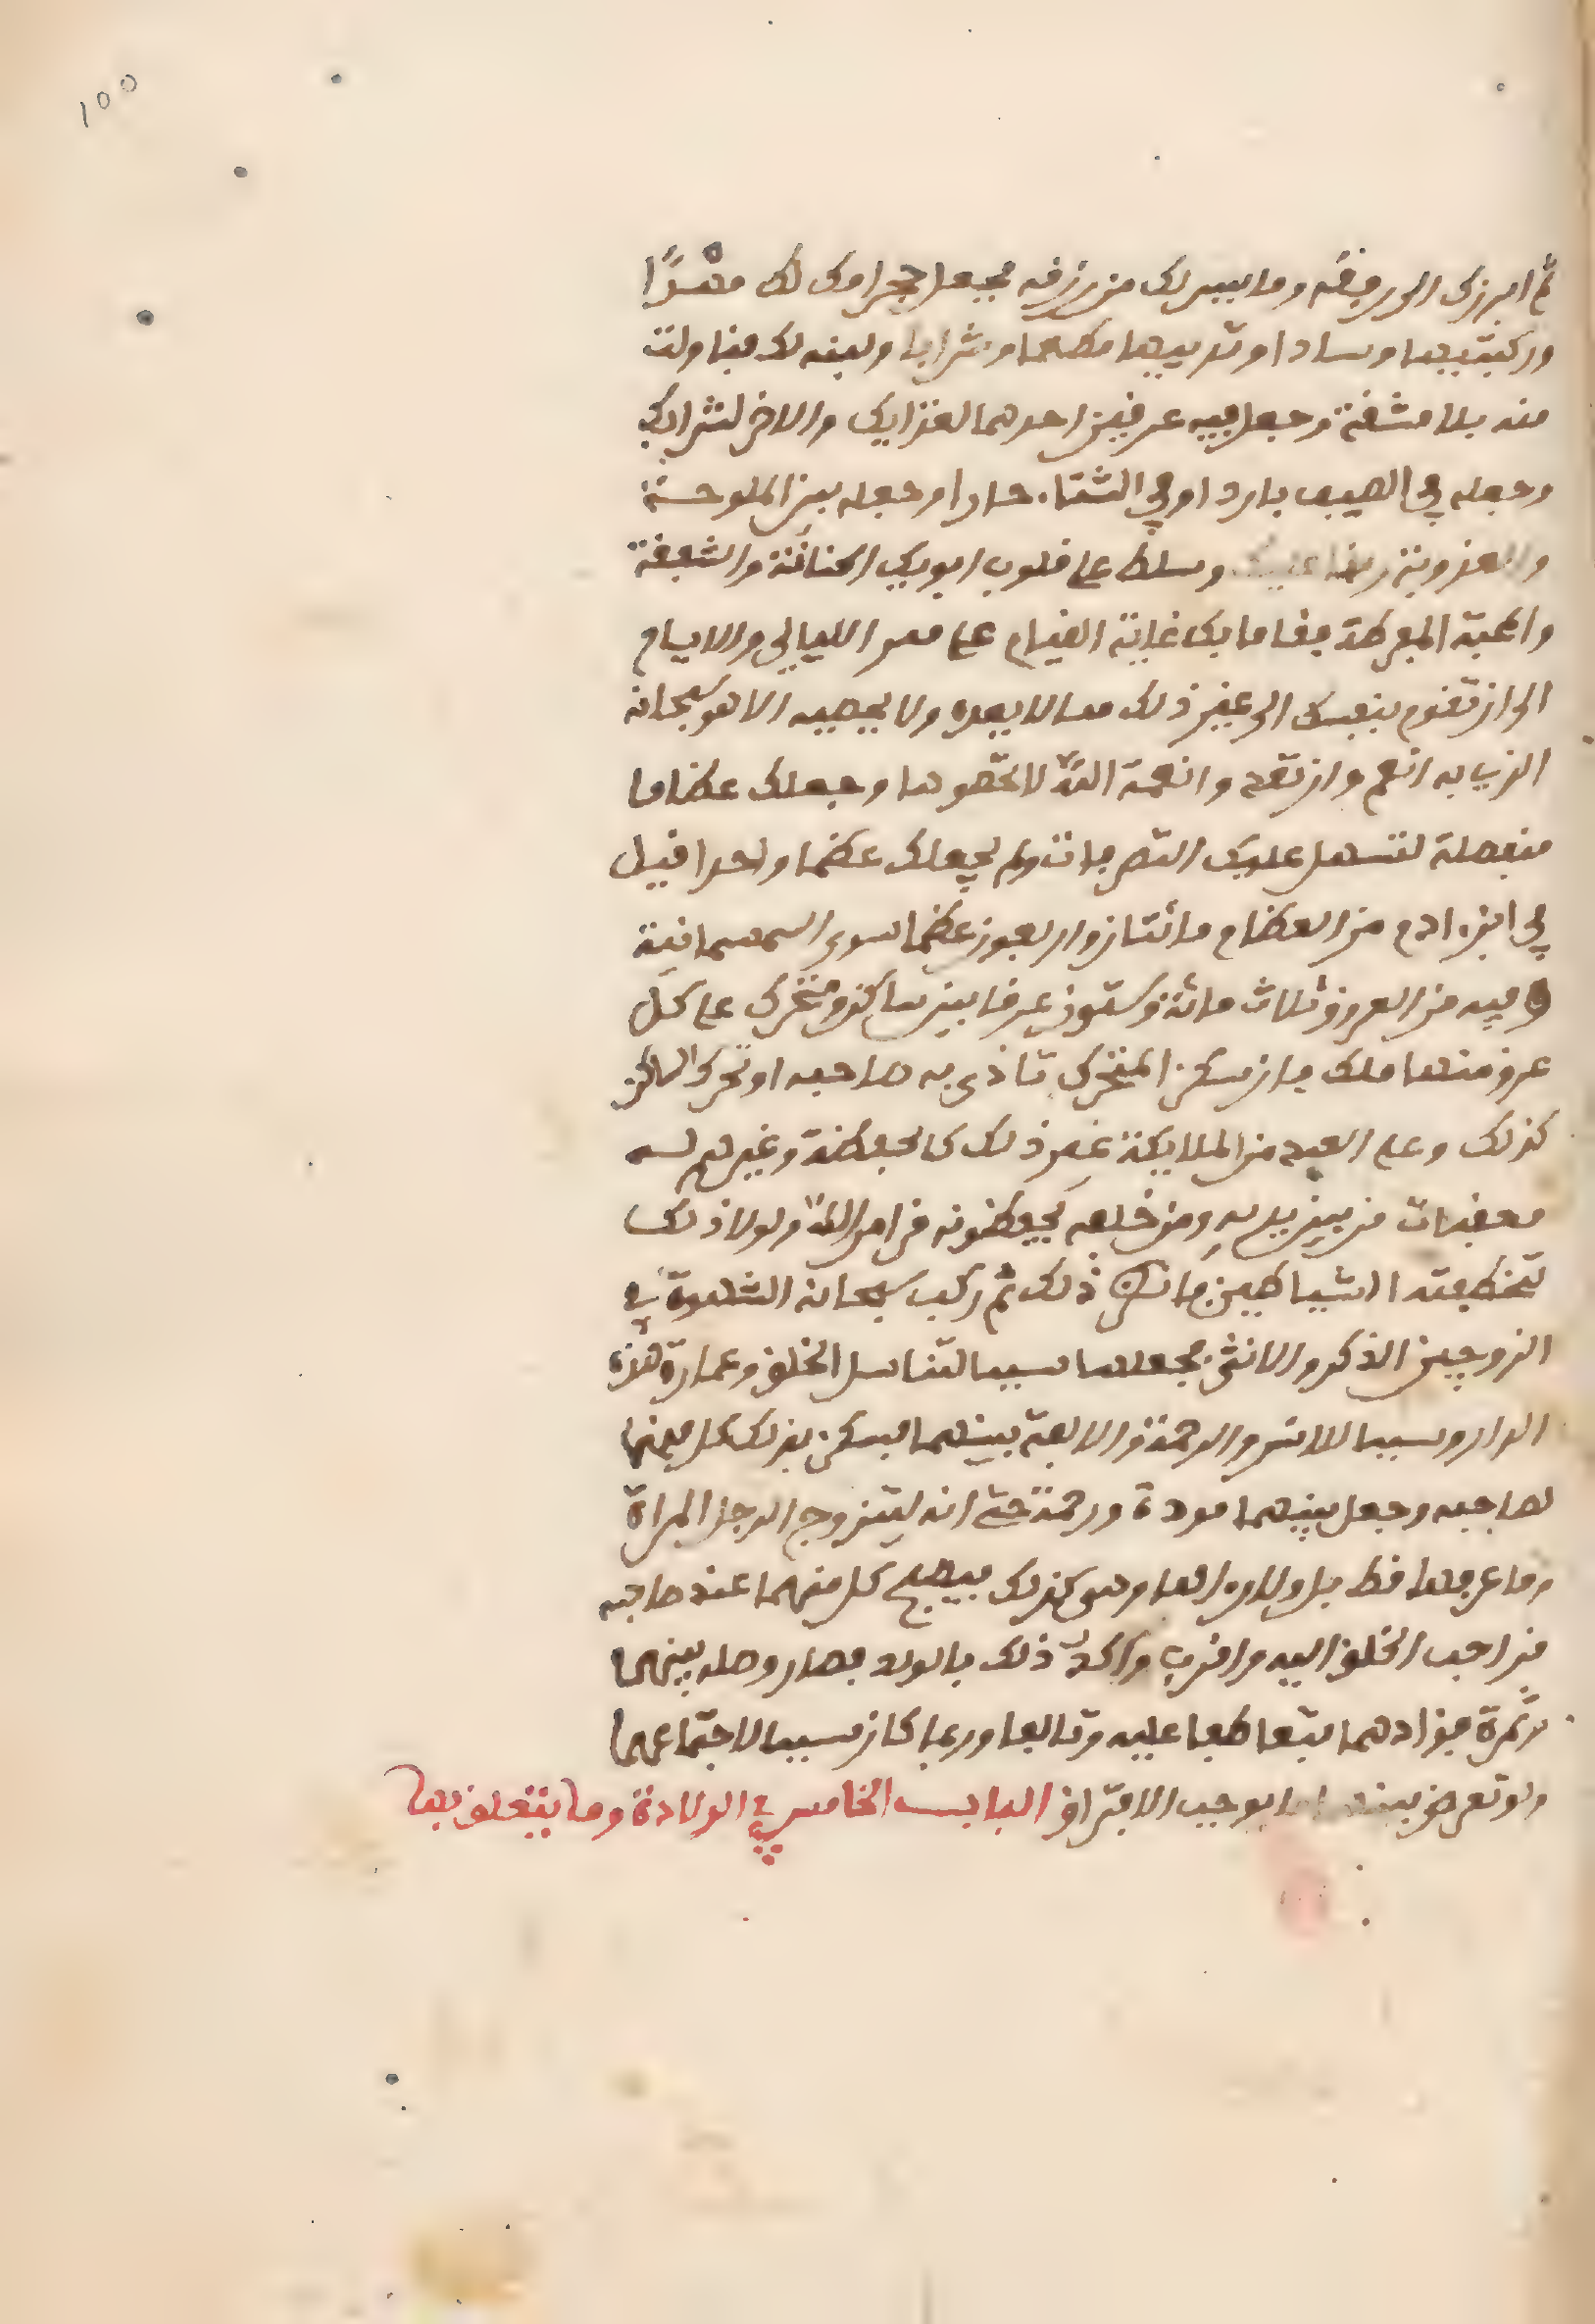 100
ثم ابرزك الى رفقه وما ييسر لك من رزقه فجعل حجر امك لك مهدًا
وركبتيها وسادا وثدييها مطعما وشرابا ولينه لك فتناولت
منه بلا مشقة وجعل فيه عرقين احدهما لغذايك والاخر لشرابك
وجعله في الصيف باردا وفي الشتاء حارا وجعله بين الملوحة
والعذوبة رفقا عليك وسلط على قلوب ابويك الحنانة والشفقة
والمحبة المفرطة فقاما بك غاية القيام على ممر الليالي والايام
الى ان تقوم بنفسك الى غير ذلك مما لا يعده ولا يحصيه الا هو سبحانه
الذي به انعم وان تعدوا نعمة الله لا تحصوها وجعلك عظاما
منفصلة لتسهل عليك التصرفات ولم يجعلك عظما واحدا قيل
في ابن ادم من العظام مائتان واربعون عظما سوى السمسمانية
وفيه من العروق ثلاث مائة وستون عرقا بين ساكن ومتحرك على كل
عرق منها ملك فان سكن المتحرك تاذى به صاحبه او تحرك الساكن
كذلك وعلى العبد من الملايكة غير ذلك كالحفظة وغيرهم له
معقبات من بين يديه ومن خلفه يحفظونه من امر الله ولولا ذلك
لتخطفته الشياطين فانكر ذلك ثم ركب سبحانه الشهوة في
الزوجين الذكر والانثى فجعلها سببا لتناسل الخلق وعمارة هذه
الدار وسببا للانس والرحمة والالفة بينهما فيسكن بذلك كل منهما
لصاحبه وجعل بينهما مودة ورحمة حتى انه ليتزوج الرجل المراة
وما عرفها قط قبل ولا راها وهي كذلك فيصبح كل منهما عند صاحبه
من احب الخلق اليه واقرب واكد ذلك بالولد فصار وصله بينهما
وثمرة فؤادهما فتعاطفا عليه وتالفا وربما كان سببا لاجتماعهما
ولو تعرض بينهما ما يوجب الافتراق الباب الخامس في الولادة وما يتعلق بها